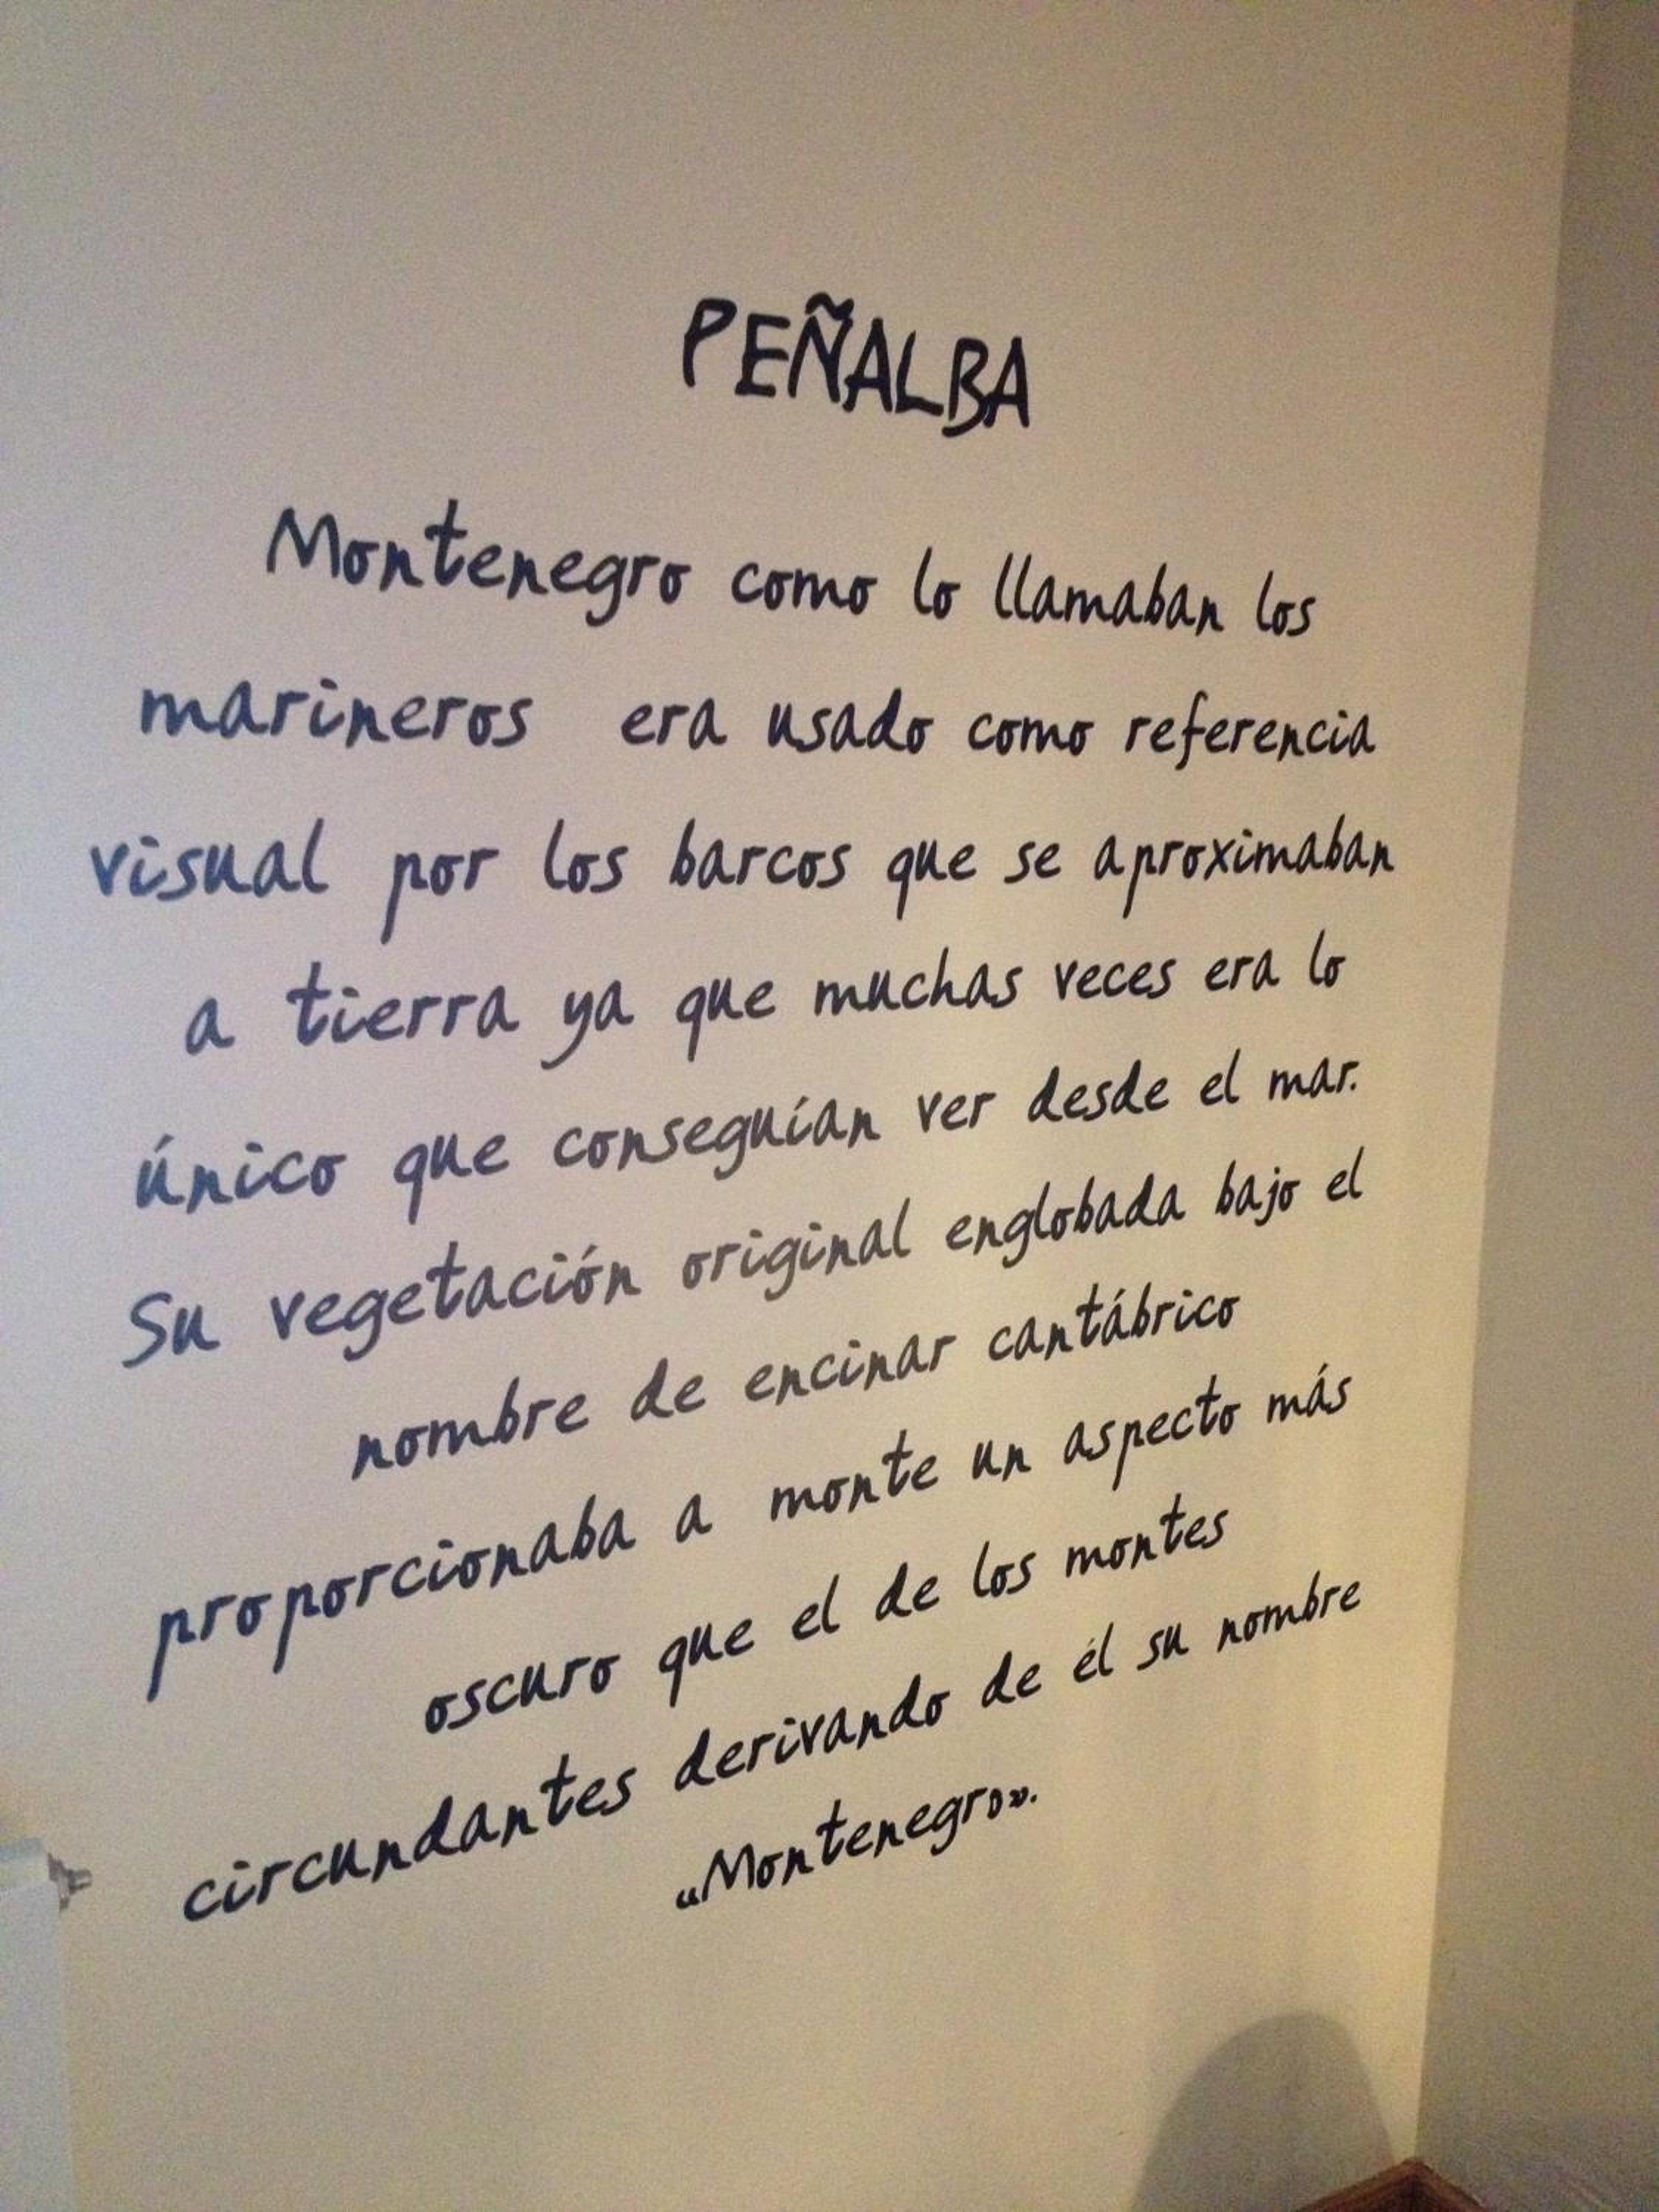 PEÑALBA
Montenegro como lo llamaban los
marineros era usado como referencia
visual por los barcos que se aproximaban
a tierra ya que muchas veces era lo
único que conseguían ver desde el mar.
Su vegetación original englobada bajo el
nombre de encinar cantábrico
proporcionaba a monte un aspecto más
oscuro que el de los montes
circundantes derivando de él su nombre
“Montenegro”.